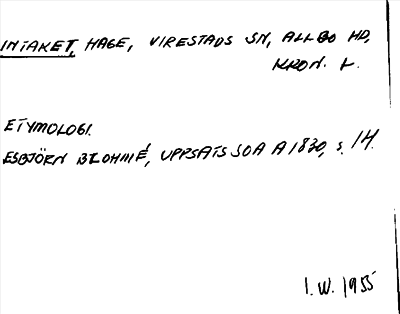 INTAKET, HAGE, VIRESTADS SN, ALLBO HD,
KRON. L.
ETYMOLOGI.
ESBJÖRN BLOHMÉ, UPPSATS SOA A 1830, s. 14.
I.W. 1955